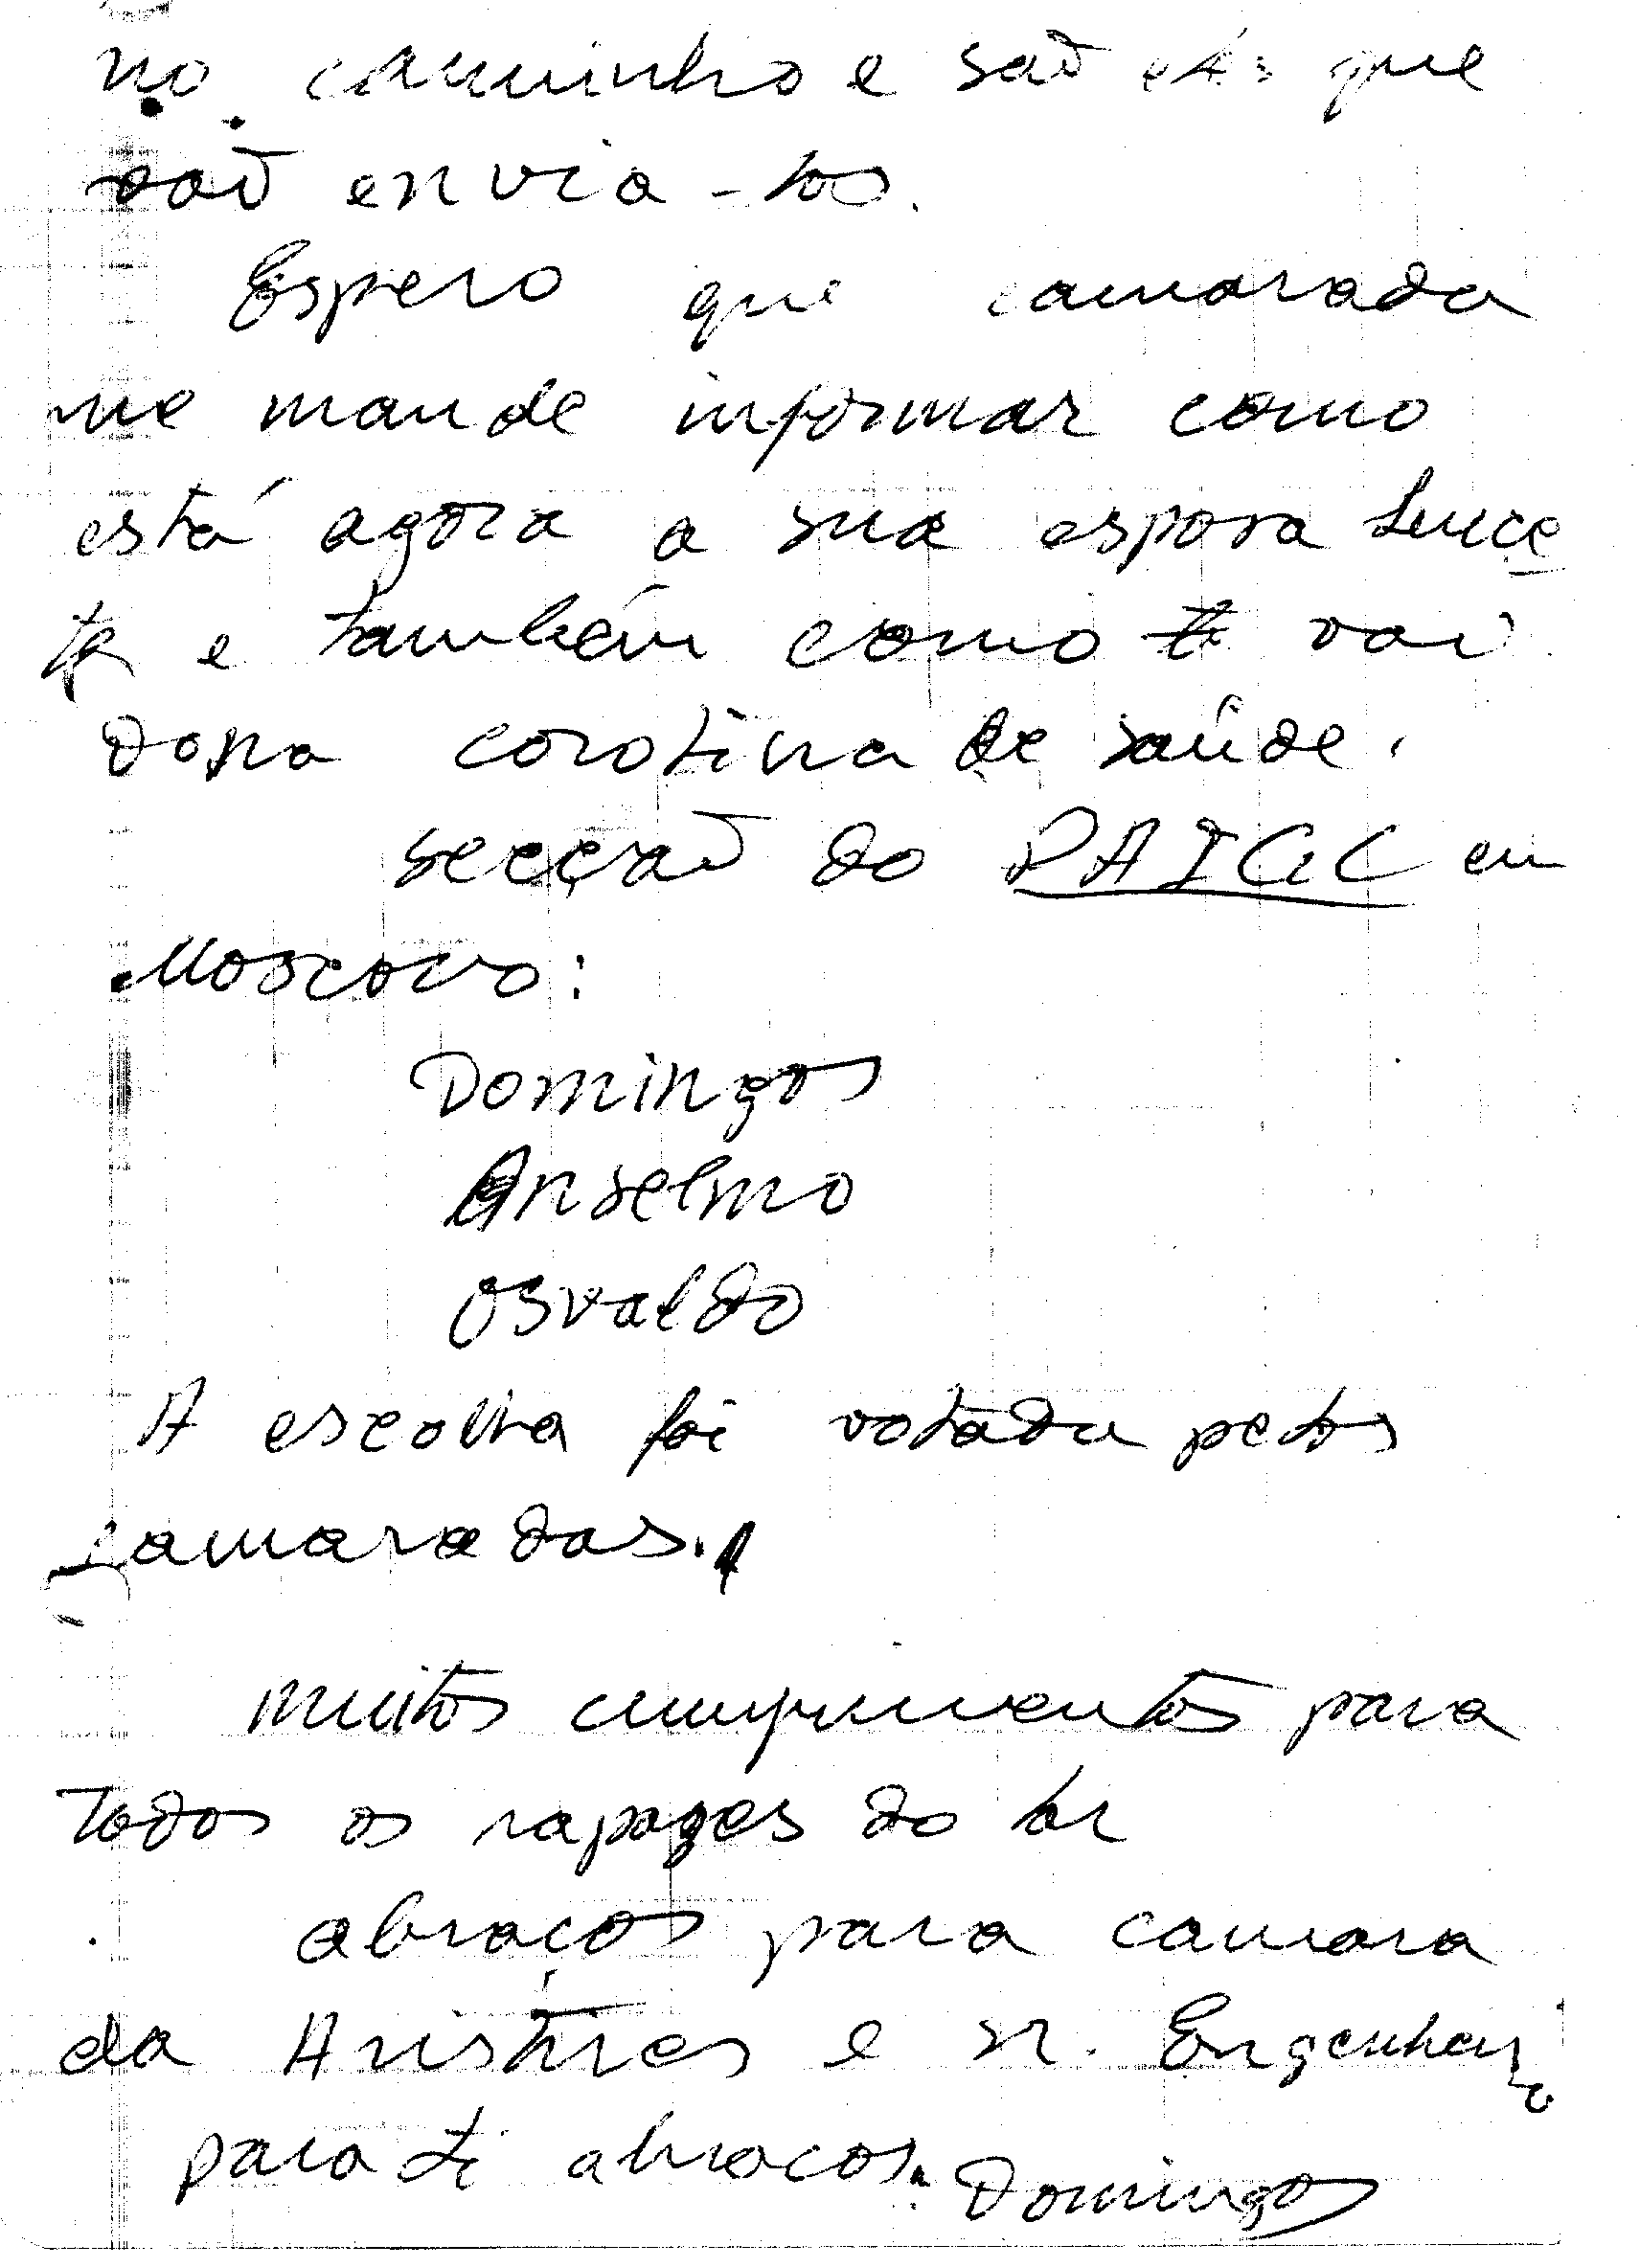 no caminho e são eles que
vão envia-los.
Espero que camarada
me mande informar como
está agora a sua esposa Luce
te e também como vai
Dona corotina de saúde.
secção do PAIGC em
Moscovo:
Domingos
Anselmo
Osvaldo
A escolha foi votada pelos
camaradas.
Muitos cumprimentos para
todos os rapazes do lar
abraços para camara
da Aristides e sr. Engenheiro
para ti abraços. Domingos